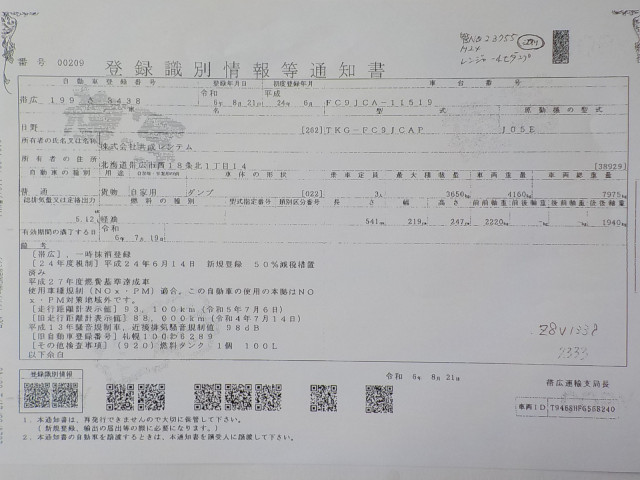 管No.23755
H24
レンジャー
番号 00209 登録識別情報等通知書
自動車登録番号 登録年月日 初度登録年月 車台番号
帯広 199 さ 3438 令和 6年 8月 21日 平成 24年 6月 FC9JCA-11519
車名 型式 原動機の型式
日野 [262] TKG-FC9JCAP J05E
所有者の氏名又は名称
所有者の住所 北海道帯広市西18条北1丁目14 [38929]
自動車の種別 用途 自家用・事業用の別 車体の形状 乗車定員 最大積載量 車両重量 車両総重量
普通 貨物 自家用 ダンプ [022] 3人 3650kg 4160kg 7975kg
総排気量又は定格出力 燃料の種類 型式指定番号 類別区分番号 長さ 幅 高さ 前前軸重 前後軸重 後前軸重 後後軸重
6.12L 軽油 541cm 219cm 247cm 2220kg -kg -kg 1940kg
有効期間の満了する日 令和 6年 7月 19日
備考
[帯広],一時抹消登録
[24年度税制]平成24年6月14日 新規登録 50%減税措置
済み
平成27年度燃費基準達成車
使用車種規制(NOx・PM)適合,この自動車の使用の本拠はNO
x・PM対策地域外です。
[走行距離計表示値]93,100km(令和5年7月6日)
[旧走行距離計表示値]88,000km(令和4年7月14日)
平成13年騒音規制車,近接排気騒音規制値 98dB
[旧自動車登録番号]札幌100は6289
[その他検査事項](920)燃料タンク 1個 100L
以下余白
登録識別情報
令和 6年 8月 21日
帯広運輸支局長
車両ID
1.本通知書は、再発行できませんので大切に保管して下さい。
(新規登録、輸出の届出等の際に必要になります。)
2.本通知書の自動車を譲渡するときは、本通知書を譲受人に譲渡して下さい。